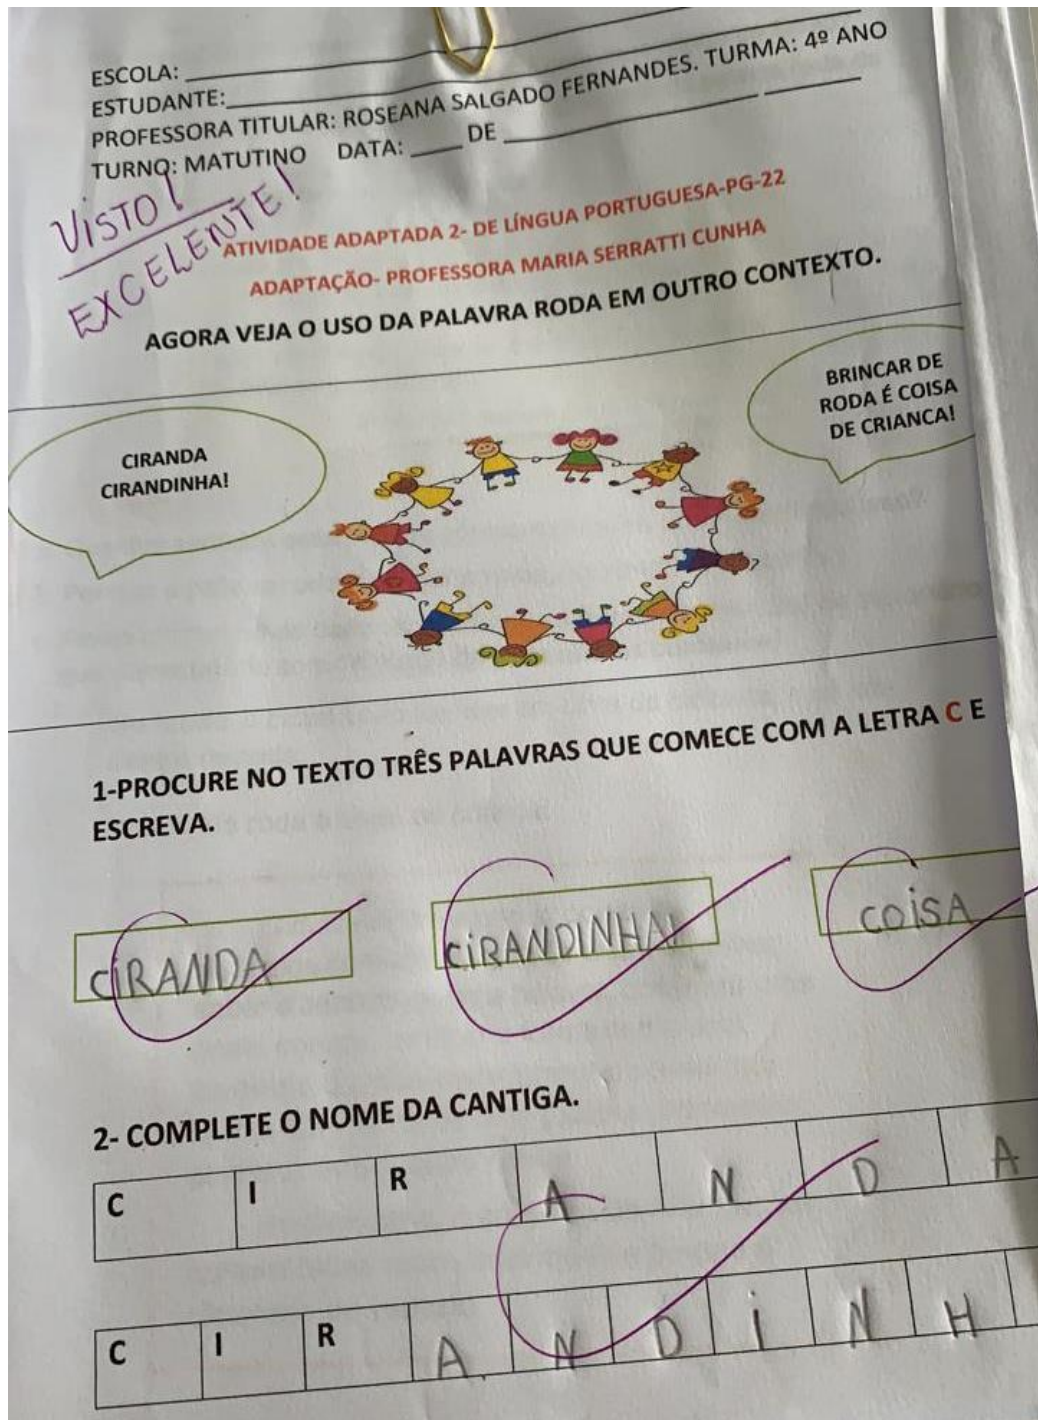 ESCOLA:
ESTUDANTE:
PROFESSORA TITULAR: ROSEANA SALGADO FERNANDES. TURMA: 4º ANO
TURNO: MATUTINO DATA: ____ DE ____
VISTO!
EXCELENTE!
ATIVIDADE ADAPTADA 2- DE LÍNGUA PORTUGUESA-PG-22
ADAPTAÇÃO- PROFESSORA MARIA SERRATTI CUNHA
AGORA VEJA O USO DA PALAVRA RODA EM OUTRO CONTEXTO.
CIRANDA
CIRANDINHA!
BRINCAR DE
RODA É COISA
DE CRIANCA!
1-PROCURE NO TEXTO TRÊS PALAVRAS QUE COMECE COM A LETRA C E
ESCREVA.
CIRANDA CIRANDINHA! COISA
2- COMPLETE O NOME DA CANTIGA.
C I R A N D A
C I R A N D I N H